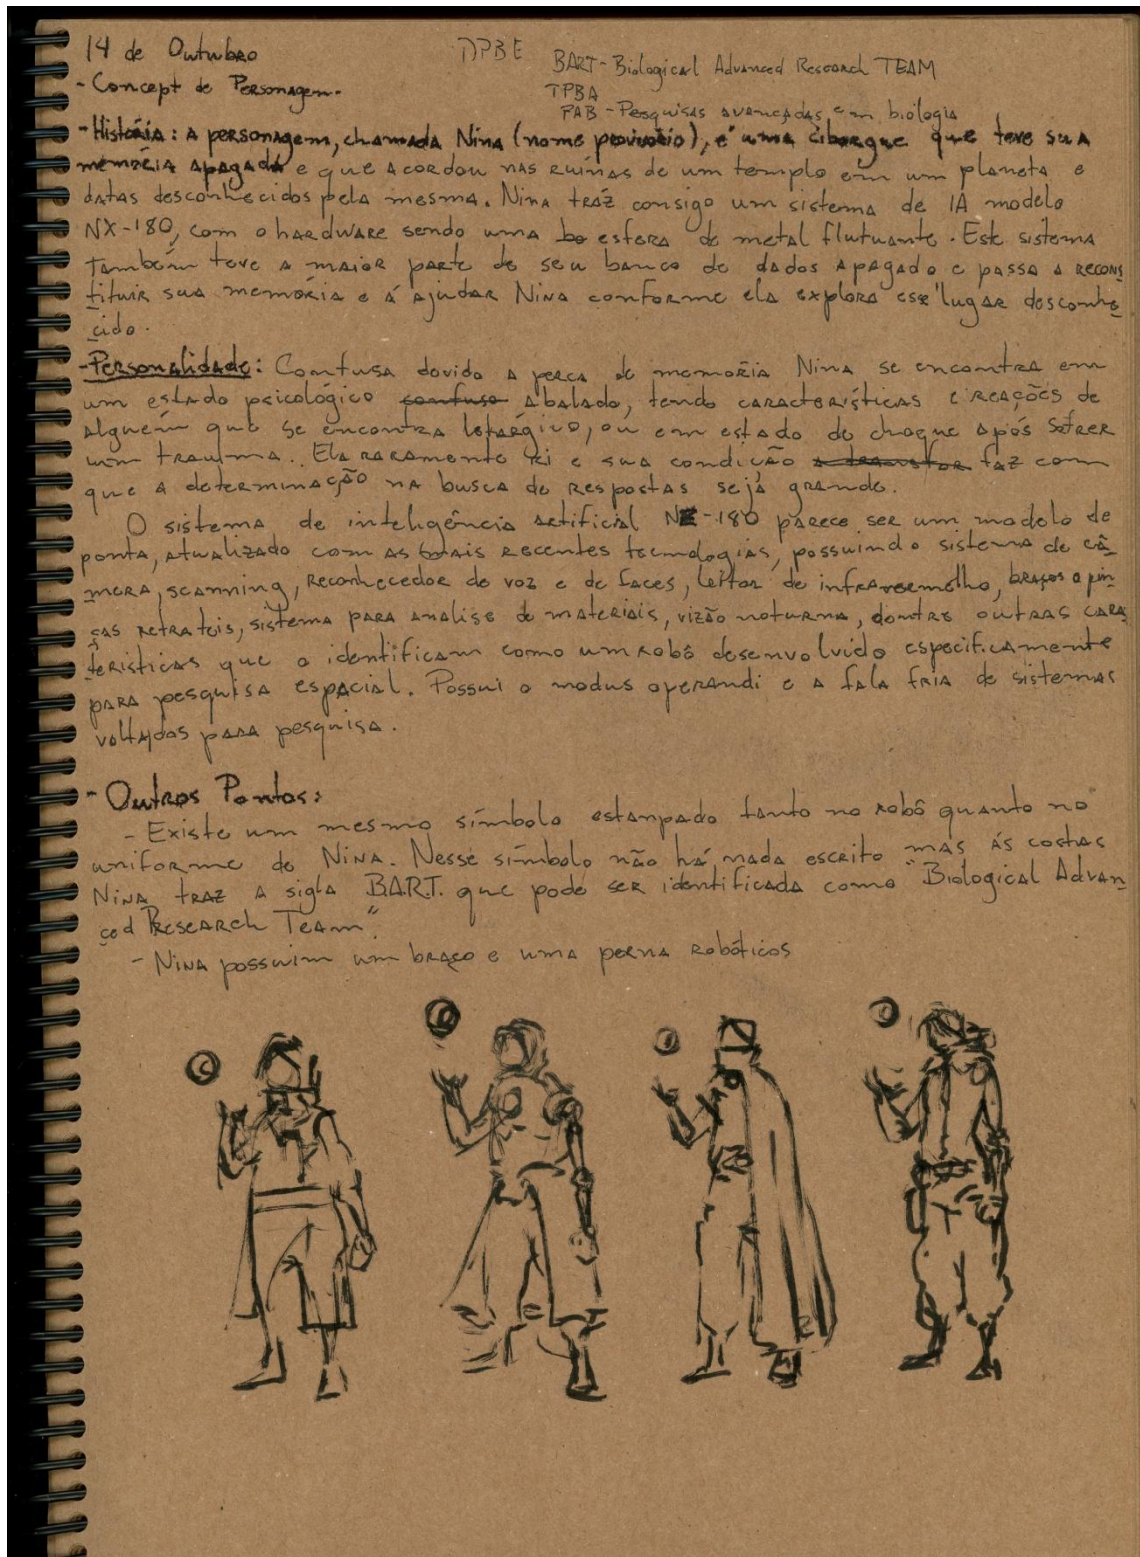 14 de Outubro
DPBE
BART-Biological Advanced Research TEAM
- Concept de Personagem-
TPBA
PAB - Pesquisas avançadas em biologia
- História: A personagem, chamada Nina (nome provisório), é uma ciborgue que teve sua
memória apagada e que acordou nas ruínas de um templo em um planeta e
datas desconhecidos pela mesma. Nina tráz consigo um sistema de IA modelo
NX-180, com o hardware sendo uma esfera de metal flutuante. Este sistema
também teve a maior parte de seu banco de dados apagado e passa a recons
tituir sua memória e á ajudar Nina conforme ela explora esse lugar desconhe
cido.
- Personalidade: Confusa devido a perca de memória Nina se encontra em
um estado psicológico confuso abalado, tendo características e reações de
alguém que se encontra letárgico, ou em estado de choque após sofrer
um trauma. Ela raramente ri e sua condição a transfor faz com
que a determinação na busca de respostas seja grande.
O sistema de inteligência artificial NX-180 parece ser um modelo de
ponta, atualizado com as mais recentes tecnologias, possuindo sistema de câ
mera, scanning, reconhecedor de voz e de faces, leitor de infravermelho, braços e pin
ças retrateis, sistema para analise de materiais, vizão noturna, dentre outras carac
teristicas que o identificam como um robô desenvolvido especificamente
para pesquisa espacial. Possui o modus operandi e a fala fria de sistemas
voltados para pesquisa.
- Outros Pontos:
- Existe um mesmo símbolo estanpado tanto no robô quanto no
uniforme de Nina. Nesse símbolo não há nada escrito mas ás costas
Nina traz a sigla B.A.R.T. que pode ser identificada como "Biological Advan
ced Research Team".
- Nina possuim um braço e uma perna robóticos